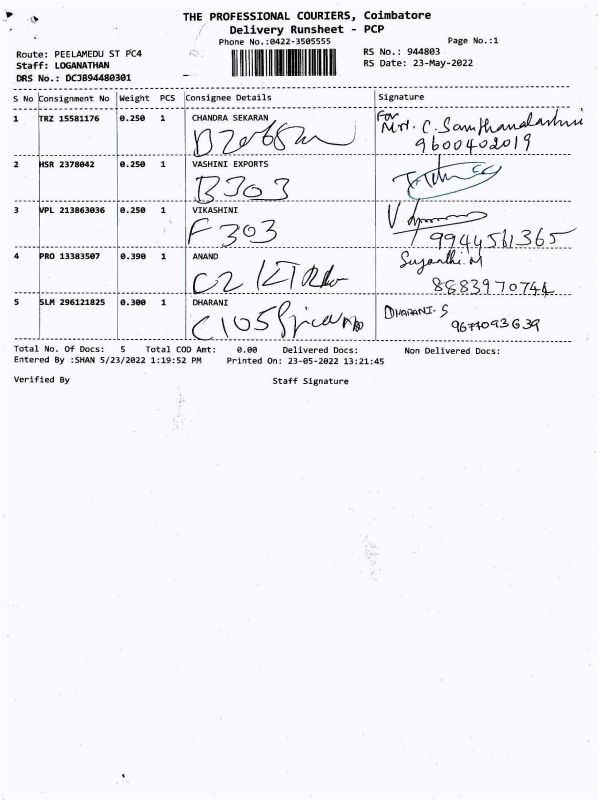 THE PROFESSIONAL COURIERS, Coimbatore
Delivery Runsheet - PCP
Phone No.:0422-3505555 Page No.:1
Route: PEELAMEDU ST PC4 RS No.: 944803
Staff: LOGANATHAN RS Date: 23-May-2022
DRS No.: DCJ894480301
S No Consignment No Weight PCS Consignee Details Signature
1 TRZ 15581176 0.250 1 CHANDRA SEKARAN For
Mrs. C.
9600402019
2 HSR 2378042 0.250 1 VASHINI EXPORTS
B303
3 VPL 213863036 0.250 1 VIKASHINI
F 303 9944561365
4 PRO 13383507 0.390 1 ANAND Suganthi.M
C2 8883970744
5 SLM 296121825 0.300 1 DHARANI DHARANI.S
C105 9677093639
Total No. Of Docs: 5 Total COD Amt: 0.00 Delivered Docs: Non Delivered Docs:
Entered By :SHAN 5/23/2022 1:19:52 PM Printed On: 23-05-2022 13:21:45
Verified By Staff Signature